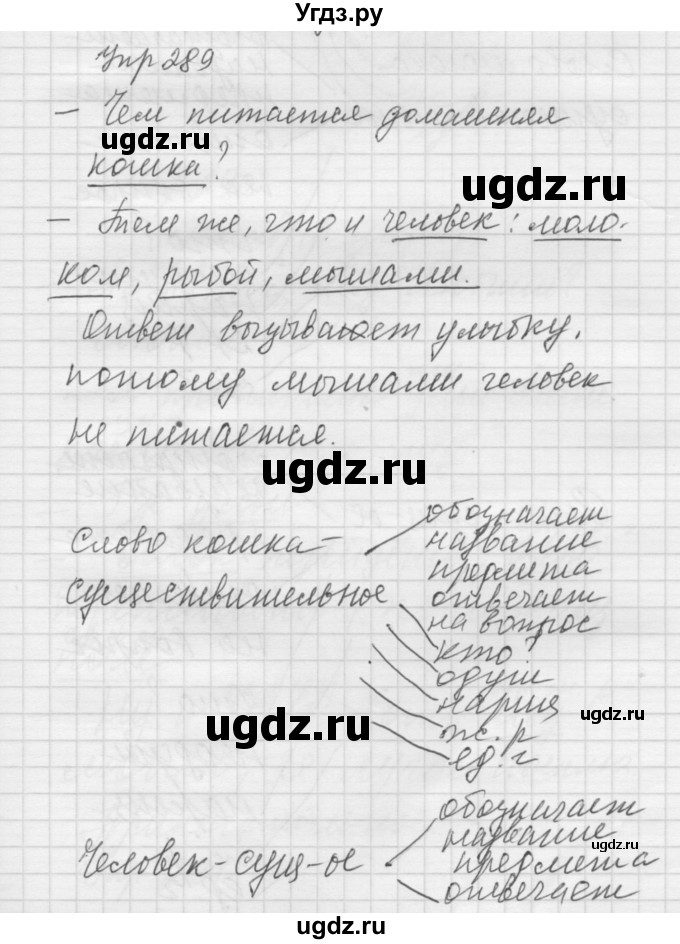 Угдз.ру
Упр 289
- Чем питается домашняя
кошка?
- Тем же, что и человек: моло-
ком, рыбой, мышами.
Ответ вызывает улыбку,
потому мышами человек
не питается.
Слово кошка-
существительное
обозначает
название
предмета
отвечает
на вопрос
кто?
одуш
нариц
ж.р
ед.ч
Человек-сущ-ое
обозначает
название
предмета
отвечает
ugdz.ru
ugdz.ru
ugdz.ru
ugdz.ru
ugdz.ru
ugdz.ru
ugdz.ru